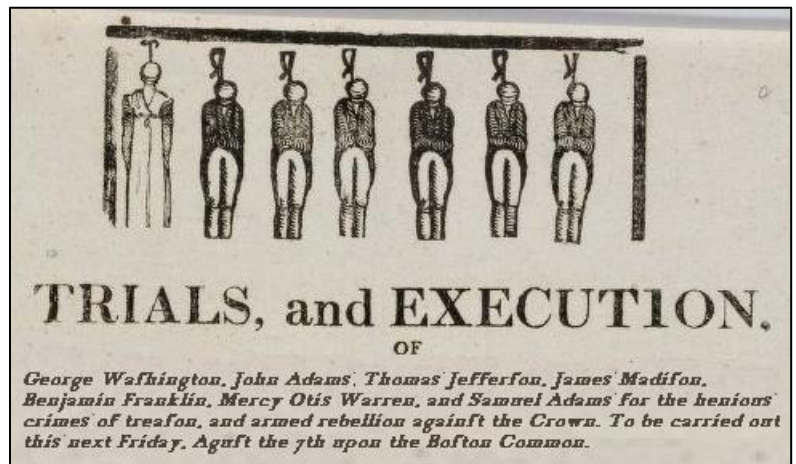 TRIALS, and EXECUTION,
OF
George Wafhington, John Adams, Thomas Jefferfon, James Madifon,
Benjamin Franklin, Mercy Otis Warren, and Samuel Adams for the henious
crimes of treafon, and armed rebellion againft the Crown. To be carried out
this next Friday, Aguft the 7th upon the Bofton Common.